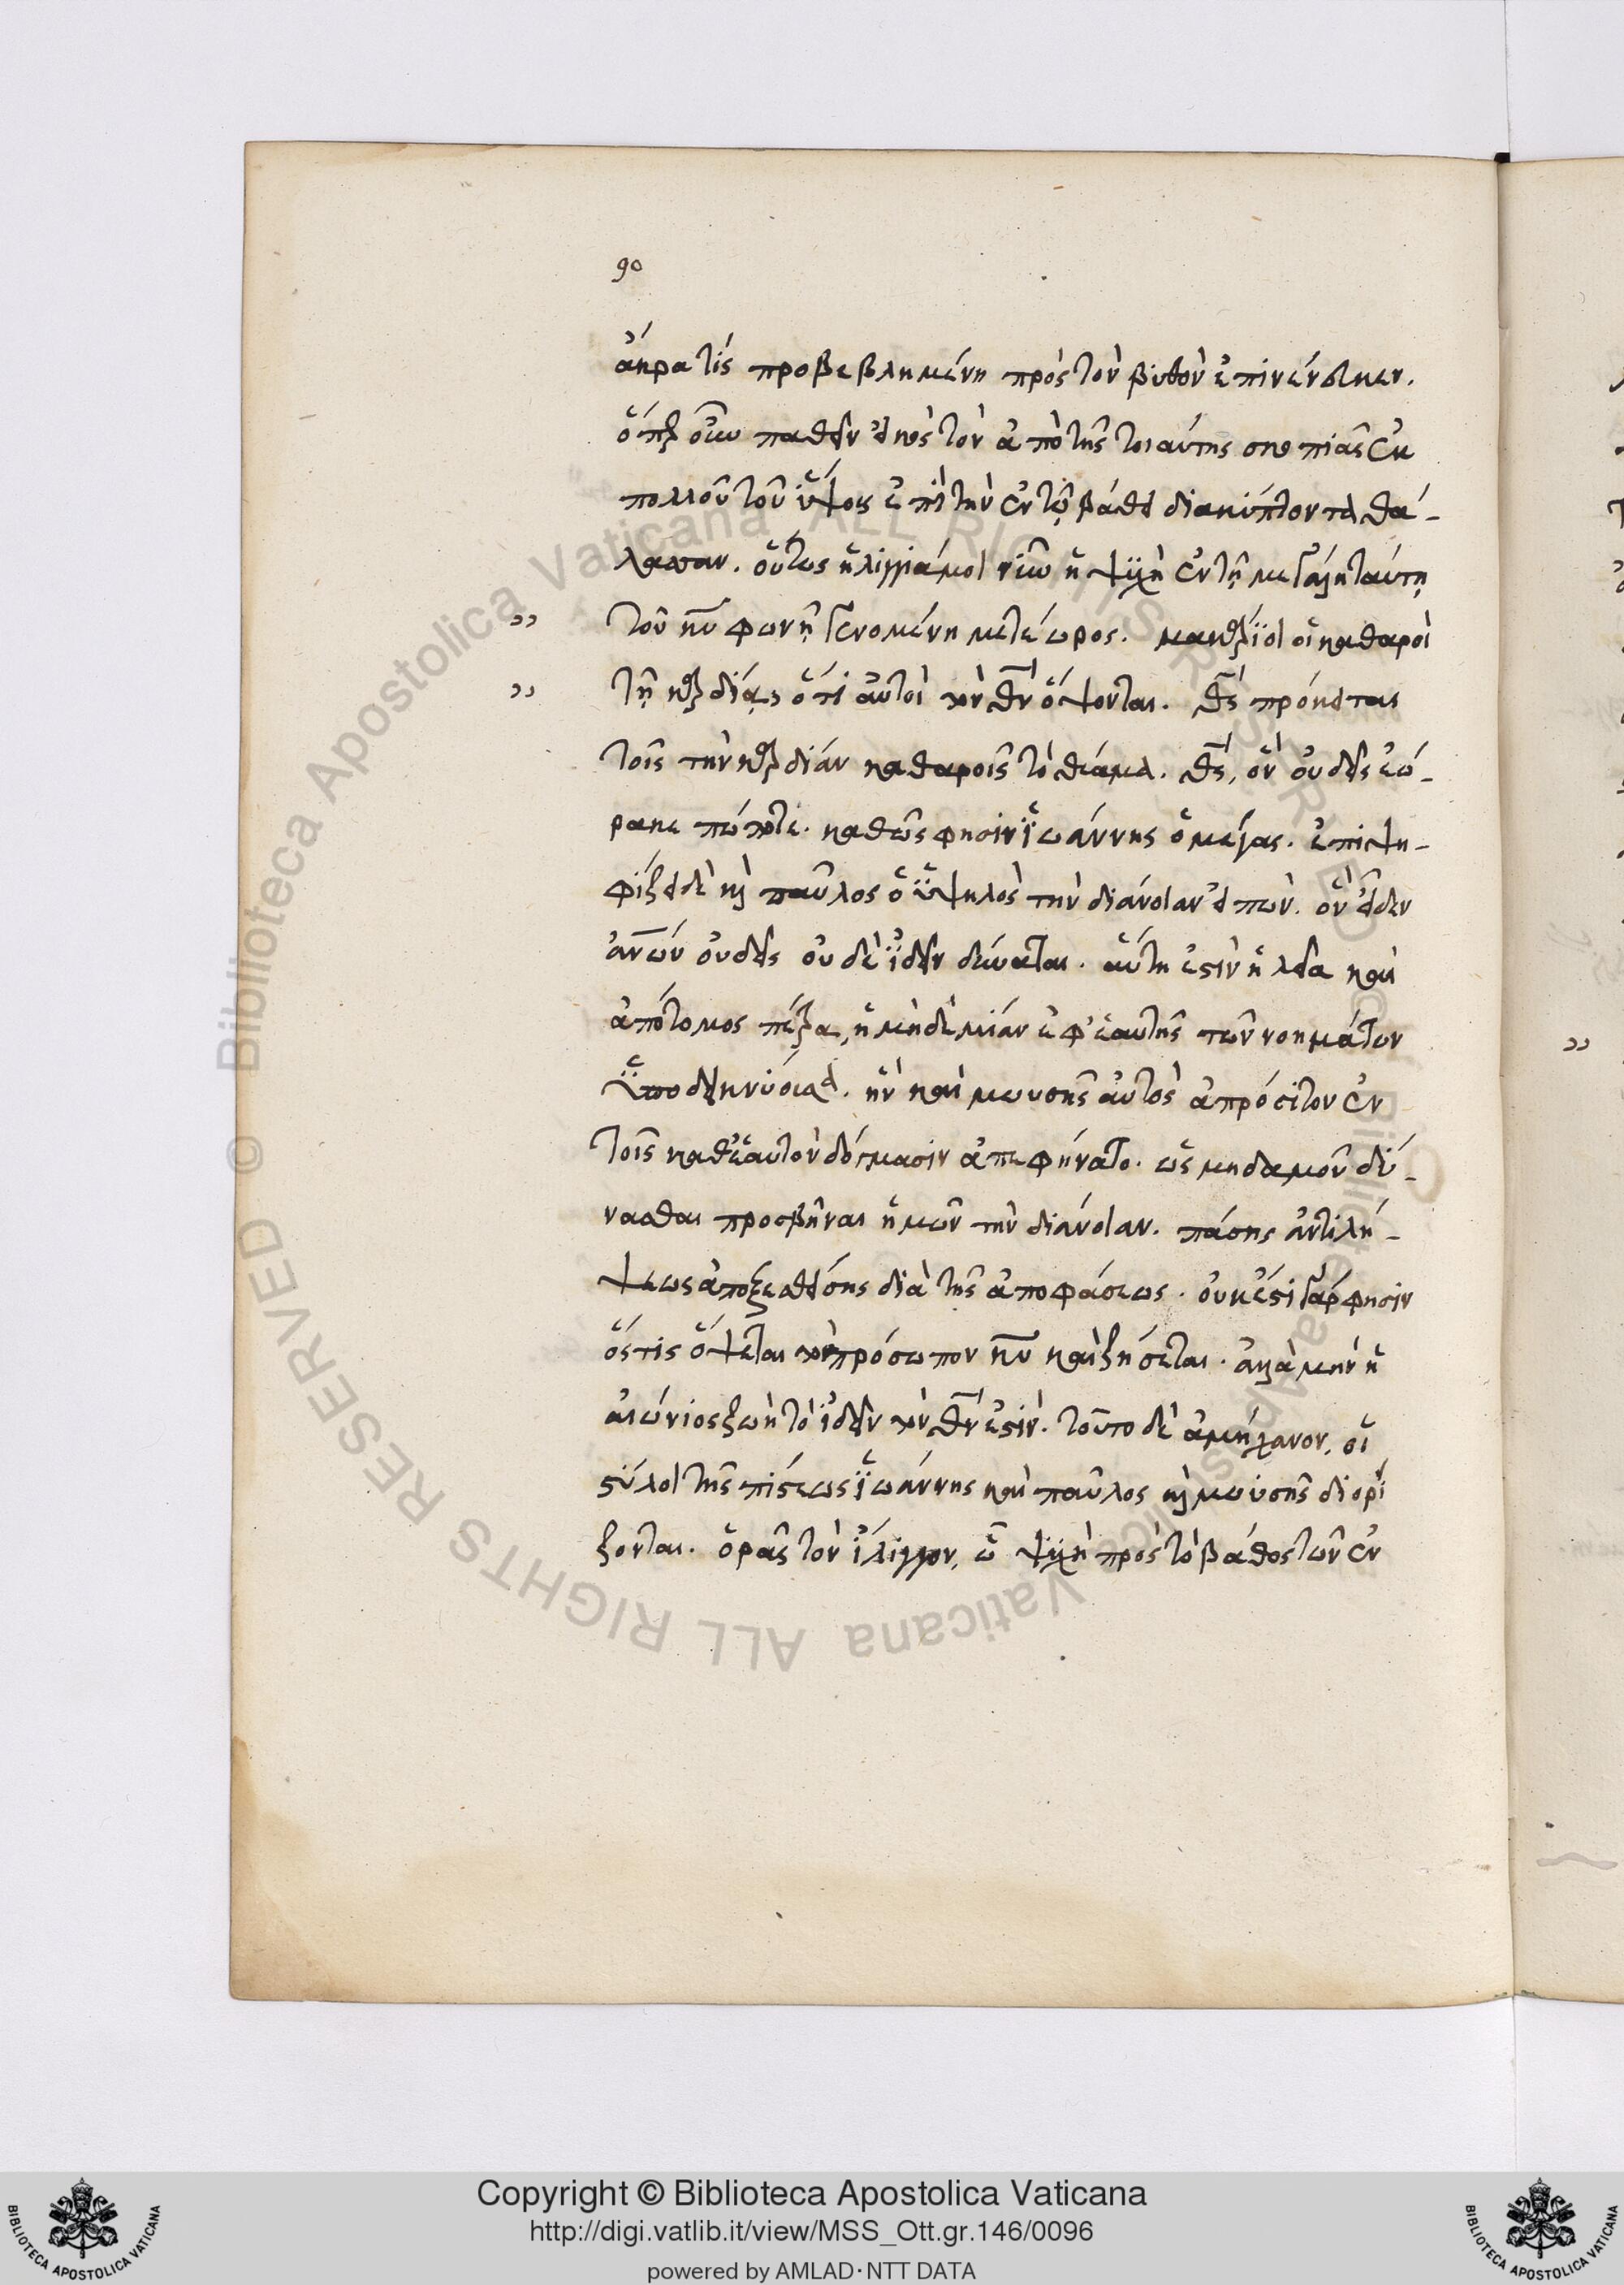 90
ἄκρα τίς προβεβλημένη πρὸς τὸν βυθὸν ἐπινένευκεν.
ὅπερ οὖν παθεῖν εἰκὸς τὸν ἀπὸ τῆς τοιαύτης σκοπιᾶς ἐκ
πολλοῦ τοῦ ὕψους ἐπὶ τὴν ἐν τῷ βάθει διακύπτοντα θά-
λασσαν. οὕτως ἠλιγγίαμοι νῦν ἡ ψυχὴ ἐν τῇ μεγάλῃ ταύτῃ
” τοῦ κυ φωνῇ γενομένη μετέωρος. μακάριοι οἱ καθαροὶ
” τῇ καρδίᾳ, ὅτι αὐτοὶ τὸν θν ὄψονται. θς πρόκειται
τοῖς τὴν καρδίαν καθαροῖς τὸ θέαμα. θς, ὃν οὐδεὶς ἑώ-
ρακε πώποτε. καθὼς φησὶν ἰωάννης ὁ μέγας. ἐπιψη-
φίζει δὲ καὶ παῦλος ὁ ὑψηλὸς τὴν διάνοιαν εἰπών. ὃν εἶδεν
ανων οὐδεὶς οὐδὲ ἰδεῖν δύναται. αὕτη ἐστὶν ἡ λεία καὶ
ἀπότομος πέτρα, ἡ μηδεμίαν ἐφ’ ἑαυτῆς τῶν νοημάτων
ὑποδεικνύουσα. ἣν καὶ μωυσῆς αὐτὸς ἀπρόσιτον ἐν
τοῖς καθ’ ἑαυτὸν δόγμασιν ἀπεφήνατο. ὡς μηδαμοῦ δύ-
νασθαι προσβῆναι ἡμῶν τὴν διάνοιαν. πάσης ἀντιλή-
ψεως ἀποξεσθείσης διὰ τῆς ἀποφάσεως. οὐκ ἔστι γάρ φησιν
ὅς τις ὄψεται τὸ πρόσωπον κυ καὶ ζήσεται. ἀλλὰ μὴν ἡ
αἰώνιος ζωὴ τὸ ἰδεῖν τὸν θν ἐστίν. τοῦτο δὲ ἀμήχανον, οἱ
στύλοι τῆς πίστεως ἰωάννης καὶ παῦλος καὶ μωϋσῆς διορί
ζονται. ὁρᾷς τὸν ἴλιγγον, ᾧ ψυχὴ πρὸς τὸ βάθος τῶν ἐν
Copyright © Biblioteca Apostolica Vaticana
http://digi.vatlib.it/view/MSS_Ott.gr.146/0096
powered by AMLAD·NTT DATA
BIBLIOTECA APOSTOLICA VATICANA
BIBLIOTECA APOSTOLICA VATICANA
© Biblioteca Apostolica Vaticana ALL RIGHTS RESERVED
© Biblioteca Apostolica Vaticana ALL RIGHTS RESERVED